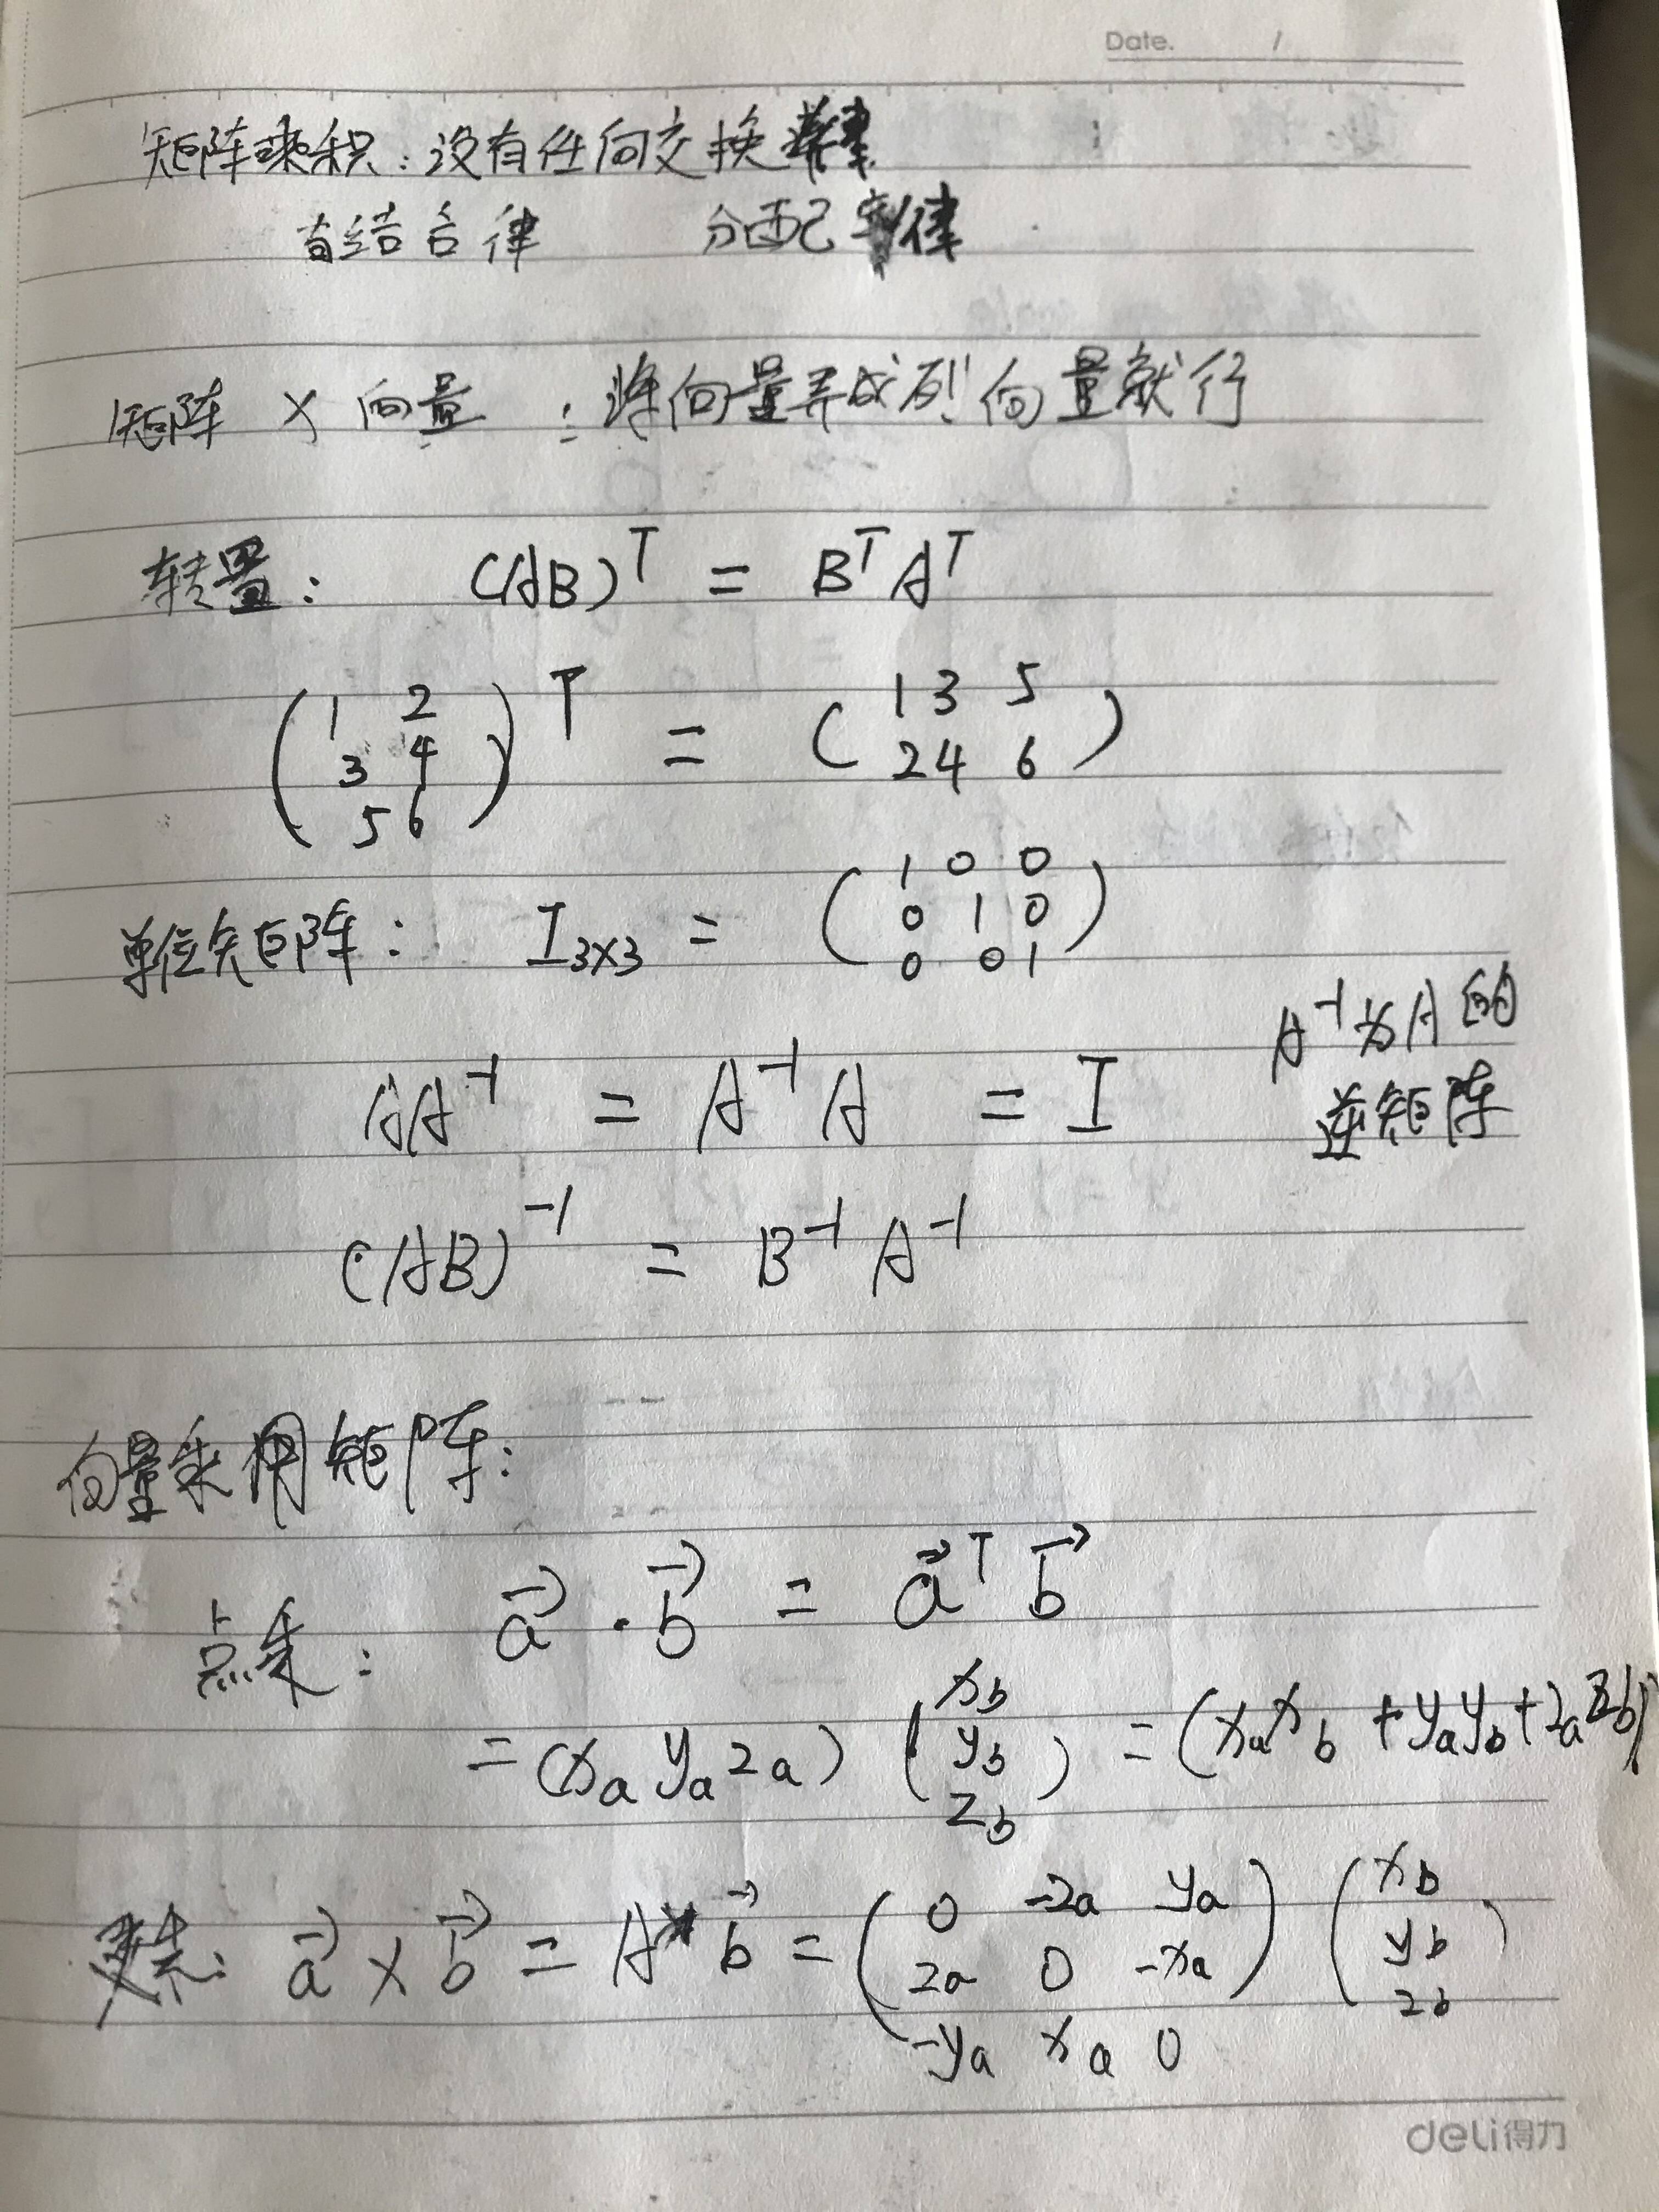 Date. /
矩阵乘积：没有任何交换律
有结合律 分配律
矩阵 × 向量 ：将向量弄成列向量就行
转置： (AB)ᵀ = BᵀAᵀ
( 1 2
3 4
5 6 )ᵀ = ( 1 3 5
2 4 6 )
单位矩阵： I₃ₓ₃ = ( 1 0 0
0 1 0
0 0 1 )
AA⁻¹ = A⁻¹A = I A⁻¹为A的
逆矩阵
(AB)⁻¹ = B⁻¹A⁻¹
向量乘用矩阵：
点乘： a⃗ · b⃗ = a⃗ᵀ b⃗
= (xₐ yₐ zₐ) ( x_b
y_b
z_b ) = (xₐx_b + yₐy_b + zₐz_b)
叉乘： a⃗ × b⃗ = A* b⃗ = ( 0 -zₐ yₐ
zₐ 0 -xₐ
-yₐ xₐ 0 ) ( x_b
y_b
z_b )
deli得力